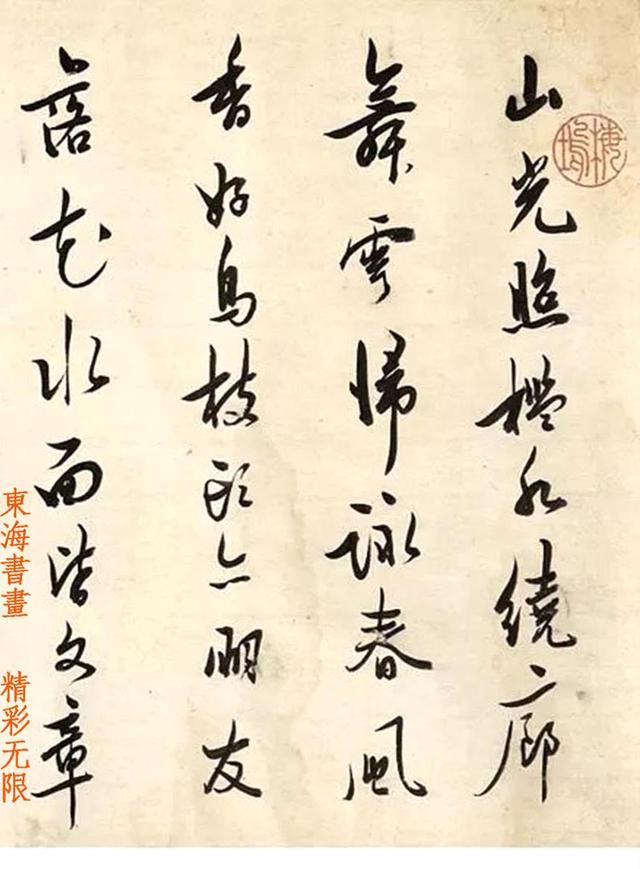 山光照檻水繞廊
舞雩歸詠春風
香好鳥枝頭亦朋友
落花水面皆文章
東海書畫 精彩无限